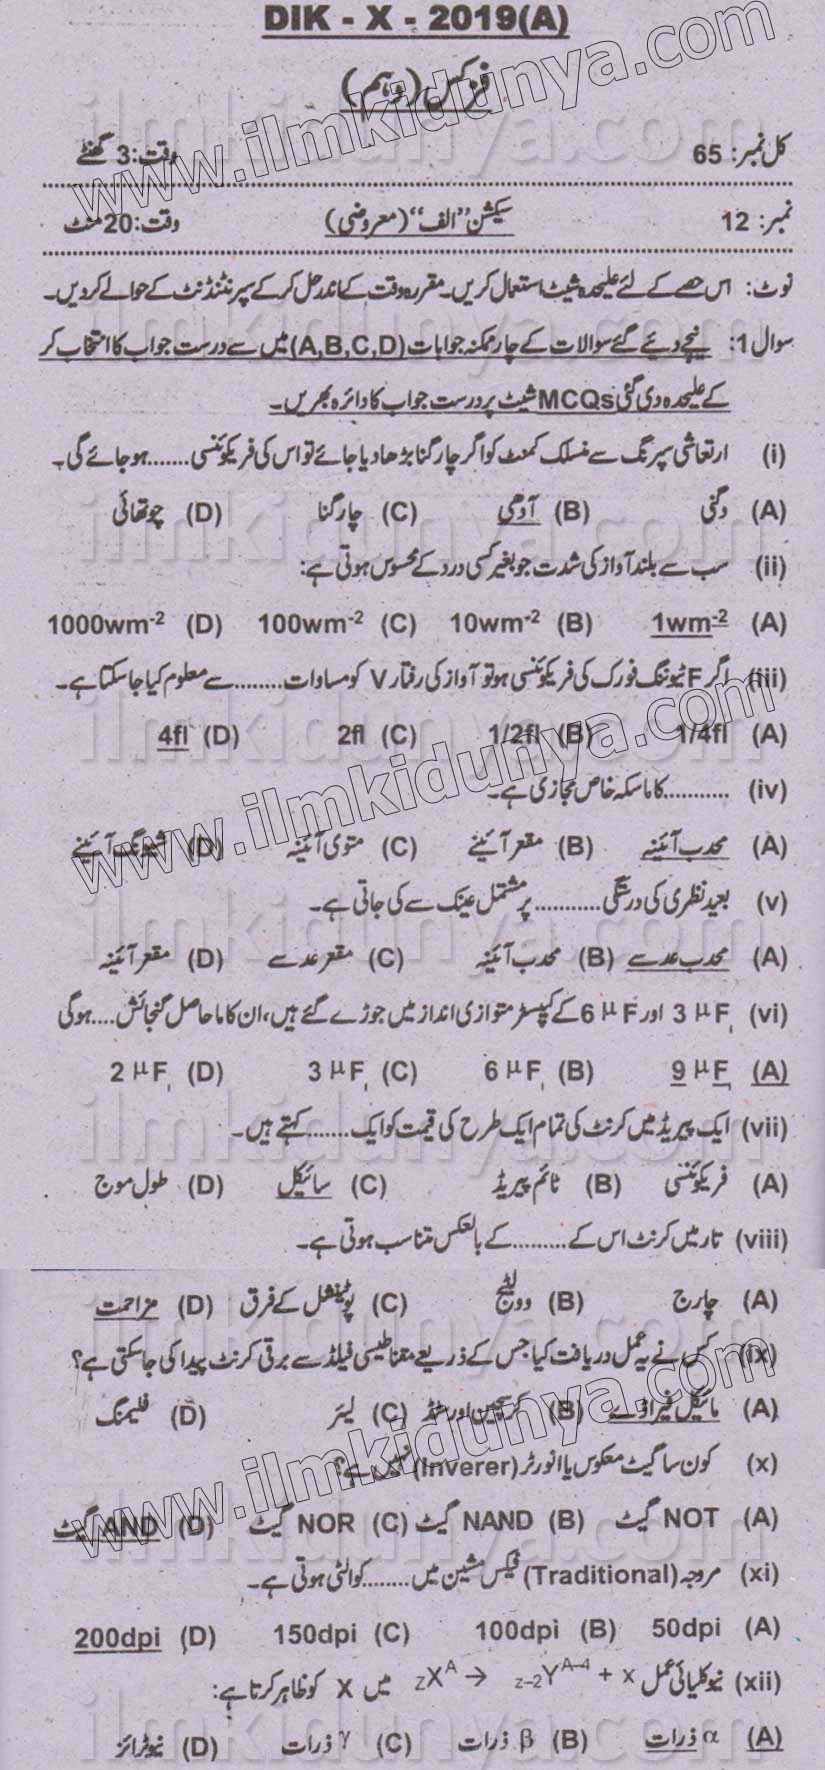 DIK - X - 2019(A)
فزکس (دہم)
کل نمبر: 65 وقت: 3 گھنٹے
نمبر: 12 سیکشن "الف" (معروضی) وقت: 20 منٹ
نوٹ: اس حصے کے لئے علیحدہ شیٹ استعمال کریں۔ مقررہ وقت کے اندر حل کر کے سپرنٹنڈنٹ کے حوالے کر دیں۔
سوال 1: نیچے دیئے گئے سوالات کے چار ممکنہ جوابات (A,B,C,D) میں سے درست جواب کا انتخاب کر
کے علیحدہ دی گئی MCQs شیٹ پر درست جواب کا دائرہ بھریں۔
(i) ارتعاشی سپرنگ سے منسلک کمیت کو اگر چار گنا بڑھا دیا جائے تو اس کی فریکوئنسی....... ہو جائے گی۔
(A) دگنی (B) آدھی (C) چار گنا (D) چوتھائی
(ii) سب سے بلند آواز کی شدت جو بغیر کسی درد کے محسوس ہوتی ہے:
(A) 1wm-2 (B) 10wm-2 (C) 100wm-2 (D) 1000wm-2
(iii) اگر F ٹیوننگ فورک کی فریکوئنسی ہو تو آواز کی رفتار V کو مساوات........ سے معلوم کیا جا سکتا ہے۔
(A) 1/4fl (B) 1/2fl (C) 2fl (D) 4fl
(iv) ........... کا ماسکہ خاص مجازی ہے۔
(A) محدب آئینہ (B) مقعر آیئنے (C) متوی آئینہ (D) شیونگ آیئنے
(v) بعید نظری کی درستگی........... پر مشتمل عینک سے کی جاتی ہے۔
(A) محدب عدسے (B) محدب آئینہ (C) مقعر عدسے (D) مقعر آئینہ
(vi) 3 μF, اور 6 μF کے کپیسٹر متوازی انداز میں جوڑے گئے ہیں، ان کا ماحاصل گنجائش.... ہو گی
(A) 9 μF, (B) 6 μF, (C) 3 μF, (D) 2 μF,
(vii) ایک پیریڈ میں کرنٹ کی تمام ایک طرح کی قیمت کو ایک....... کہتے ہیں۔
(A) فریکوئنسی (B) ٹائم پیریڈ (C) سائیکل (D) طول موج
(viii) تار میں کرنٹ اس کے......... کے بالعکس متناسب ہوتی ہے۔
(A) چارج (B) وولٹیج (C) پوٹینشل کے فرق (D) مزاحمت
(ix) کس نے یہ عمل دریافت کیا جس کے ذریعے مقناطیسی فیلڈ سے برقی کرنٹ پیدا کی جا سکتی ہے؟
(A) مائیکل فیراڈے (B) کرسچین اورسٹڈ (C) لینز (D) فلیمنگ
(x) کون سا گیٹ معکوس یا انورٹر (Inverer) نہیں ہے؟
(A) NOT گیٹ (B) NAND گیٹ (C) NOR گیٹ (D) AND گیٹ
(xi) مروجہ (Traditional) فیکس مشین میں........ کوالٹی ہوتی ہے۔
(A) 50dpi (B) 100dpi (C) 150dpi (D) 200dpi
(xii) نیوکلیائی عمل zX^A → z–2Y^A–4 + x میں X کو ظاہر کرتا ہے:
(A) α ذرات (B) β ذرات (C) γ ذرات (D) نیوٹرانز
www.ilmkidunya.com
www.ilmkidunya.com
www.ilmkidunya.com